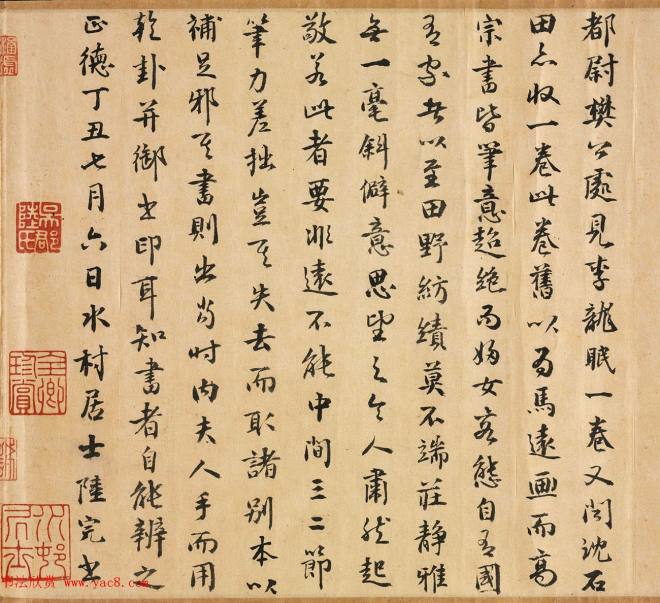 都尉樊公處見李龍眠一卷又聞沈石
田亦收一卷此卷舊以為馬遠画而高
宗書皆筆意超絶而婦女容態自有國
有家者以至田野紡績莫不端莊静雅
無一毫斜僻意思望之令人肅然起
敬若此者要非遠不能中間三二節
筆力差拙豈其失去而取諸别本以
補足邪其書則出當時内夫人手而用
乾卦并御書印耳知書者自能辨之
正德丁丑七月六日水村居士陸完書
吳郡陸氏
全卿珍賞
书法欣赏 www.yac8.com